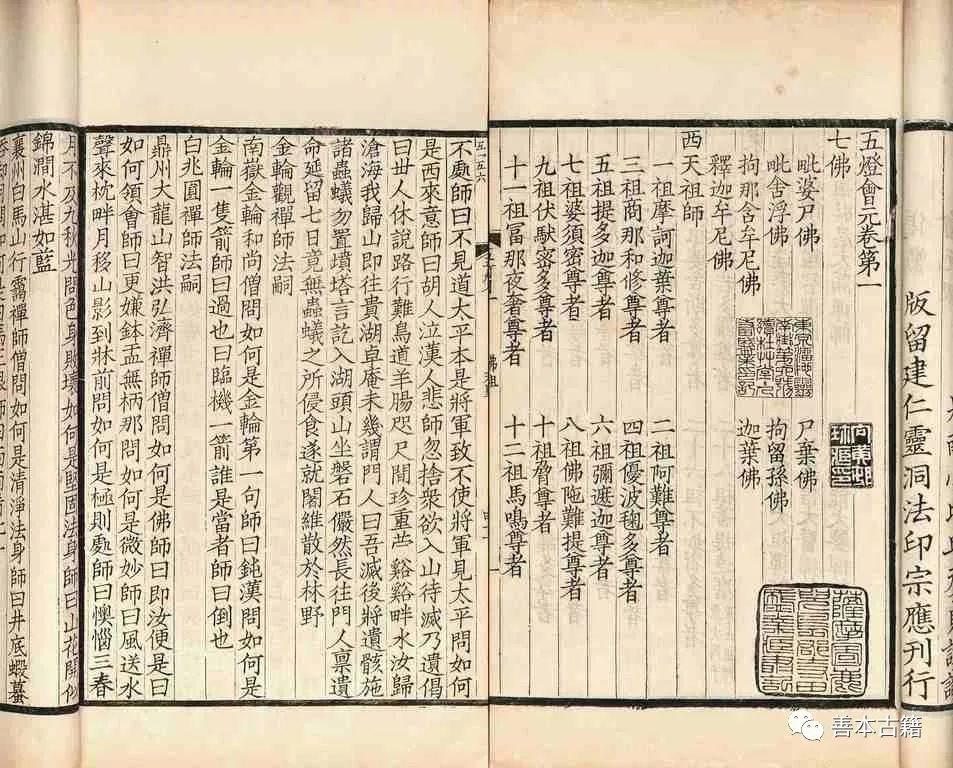 版留建仁靈洞法印宗應刊行
五燈會元卷第一
七佛
毗婆尸佛　尸棄佛
毗舍浮佛　拘留孫佛
拘那舍牟尼佛　迦葉佛
釋迦牟尼佛
西天祖師
一祖摩訶迦葉尊者　二祖阿難尊者
三祖商那和修尊者　四祖優波毱多尊者
五祖提多迦尊者　六祖彌遮迦尊者
七祖婆須密尊者　八祖佛陁難提尊者
九祖伏䭾密多尊者　十祖脅尊者
十一祖冨那夜奢尊者　十二祖馬鳴尊者
不處師曰不見道太平本是將軍致不使將軍見太平問如何
是西來意師曰胡人泣漢人悲師忽捨衆欲入山待滅乃遺偈
曰世人休說路行難鳥道羊腸咫尺間珍重苧谿谿畔水汝歸
滄海我歸山即往貴湖卓庵未幾謂門人曰吾滅後將遺骸施
諸蟲蟻勿置墳塔言訖入湖頭山坐磐石儼然長往門人禀遺
命延留七日竟無蟲蟻之所侵食遂就闍維散於林野
金輪觀禪師法嗣
南嶽金輪和尚僧問如何是金輪第一句師曰鈍漢問如何是
金輪一隻箭師曰過也曰臨機一箭誰是當者師曰倒也
白兆圓禪師法嗣
鼎州大龍山智洪弘濟禪師僧問如何是佛師曰即汝便是曰
如何領會師曰更嫌鉢盂無柄那問如何是微妙師曰風送水
聲來枕畔月移山影到牀前問如何是極則處師曰懊惱三春
月不及九秋光問色身敗壞如何是堅固法身師曰山花開似
錦澗水湛如藍
襄州白馬山行靄禪師僧問如何是清淨法身師曰井底蝦蟇
善本古籍